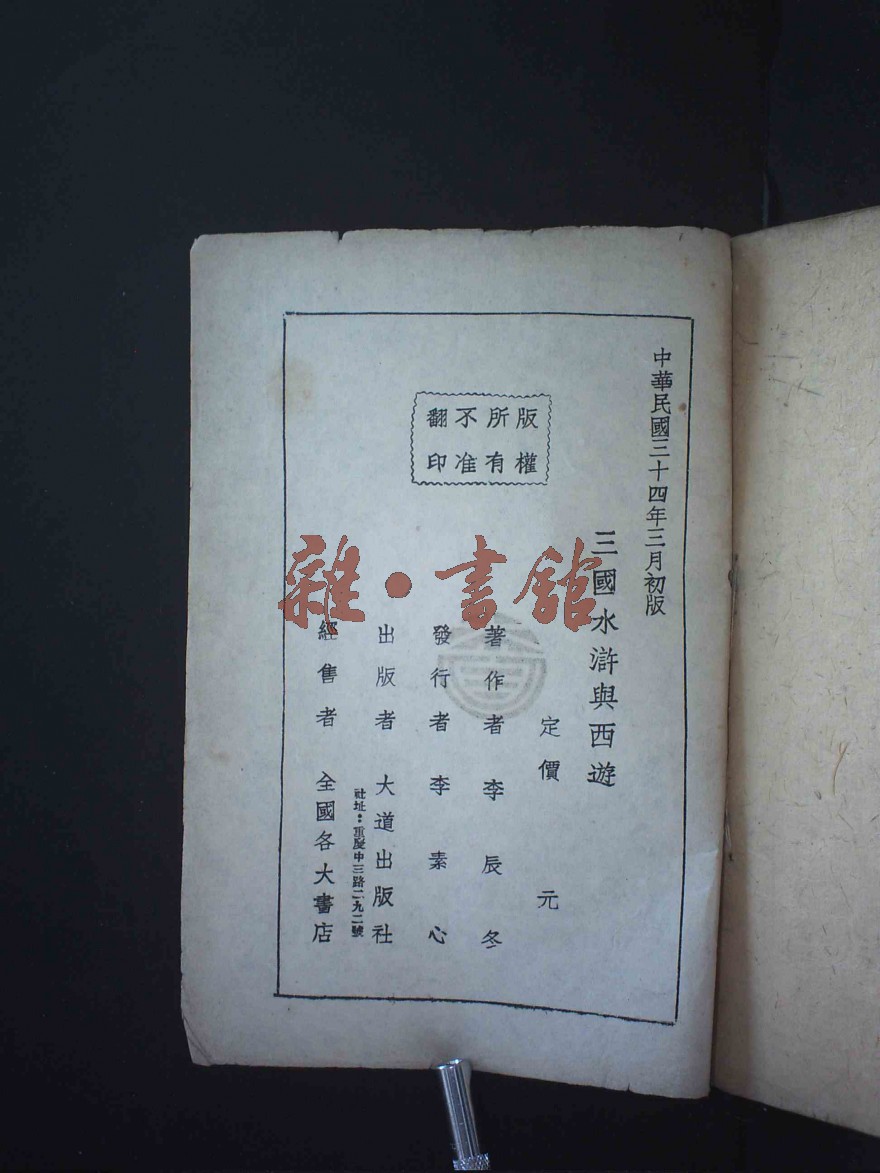 中華民國三十四年三月初版
三國水滸與西遊
定價 元
著作者 李辰冬
發行者 李素心
出版者 大道出版社
社址：重慶中三路二九二號
經售者 全國各大書店
版權
所有
不准
翻印
雜·書館